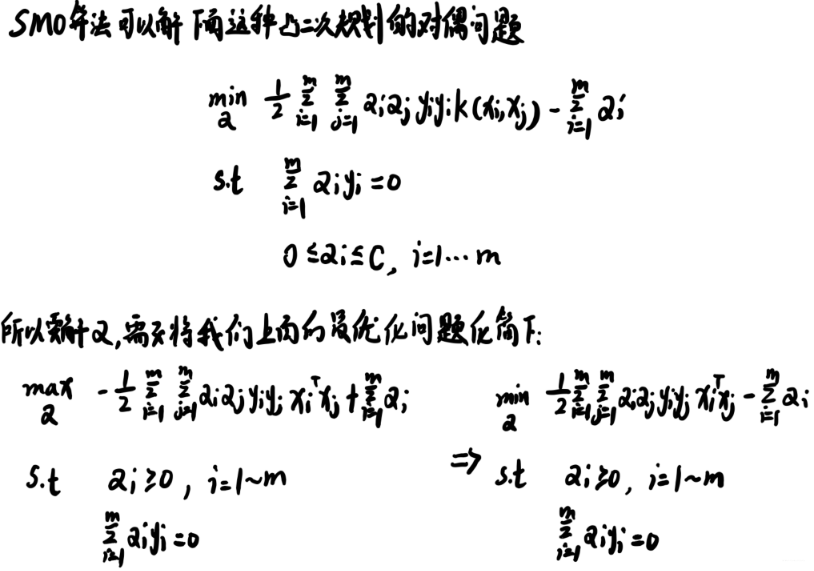 SMO算法可以解下面这种凸二次规划的对偶问题
min α 1/2 Σ_{i=1}^{m} Σ_{j=1}^{m} αiαj yiyj k(xi,xj) - Σ_{i=1}^{m} αi
s.t Σ_{i=1}^{m} αiyi = 0
0 ≤ αi ≤ C, i=1…m
所以要解α,需要将我们上面的最优化问题化简下:
max α -1/2 Σ_{i=1}^{m} Σ_{j=1}^{m} αiαj yiyj xi^T xj + Σ_{i=1}^{m} αi
s.t αi ≥ 0, i=1~m
Σ_{i=1}^{m} αiyi = 0
⇒
min α 1/2 Σ_{i=1}^{m} Σ_{j=1}^{m} αiαj yiyj xi^T xj - Σ_{i=1}^{m} αi
s.t αi ≥ 0, i=1~m
Σ_{i=1}^{m} αiyi = 0